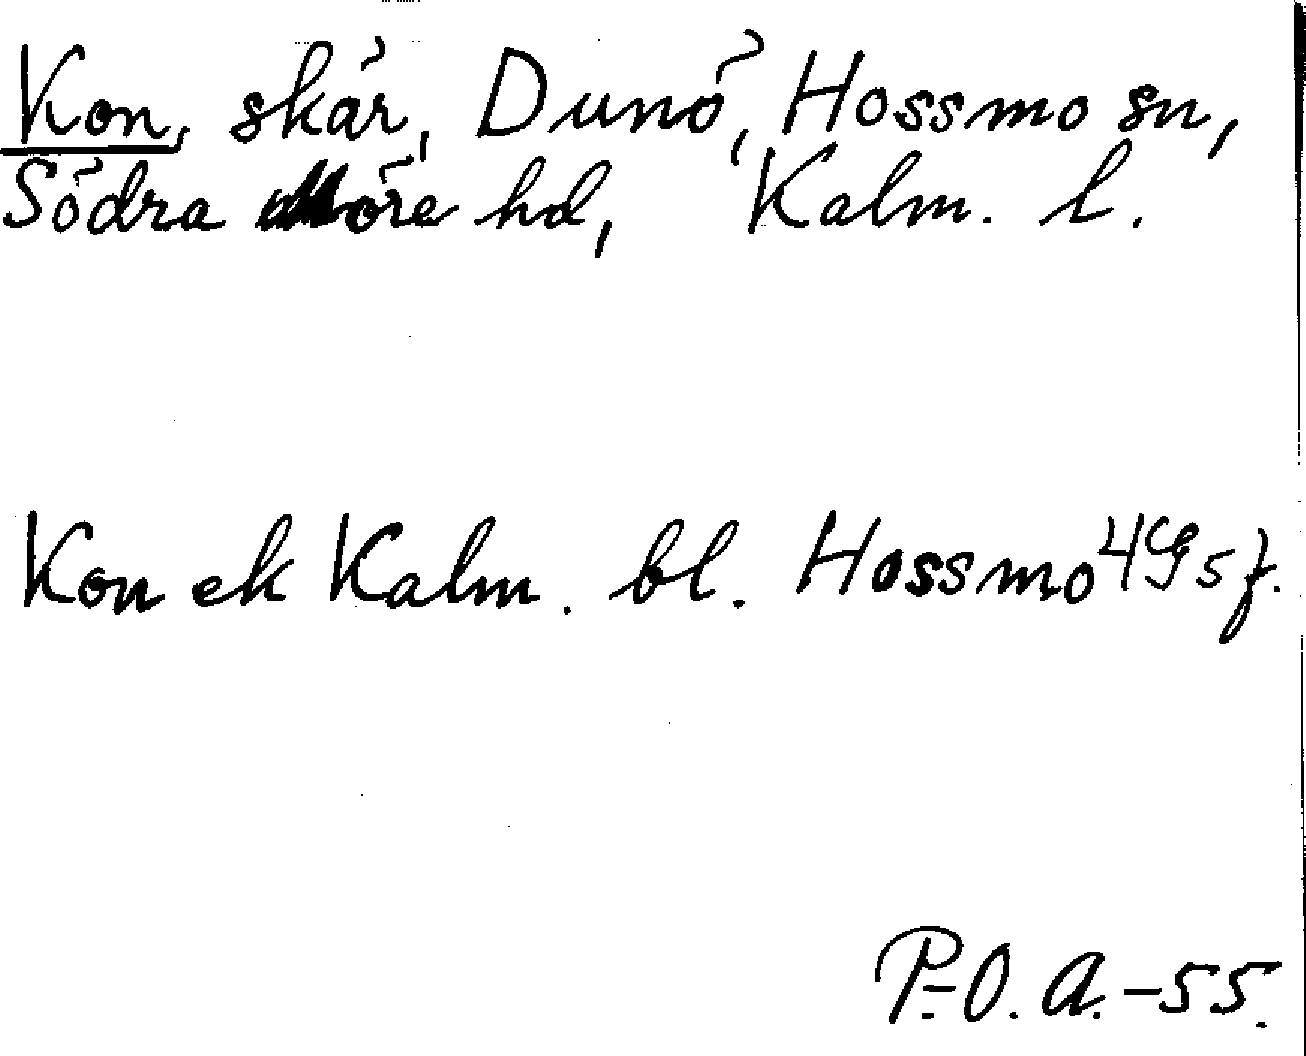 Kon, skär, Dunö, Hossmo sn,
Södra Möre hd, Kalm. l.
Kon ek Kalm. bl. Hossmo 4G5f.
P.-O. A.-55.